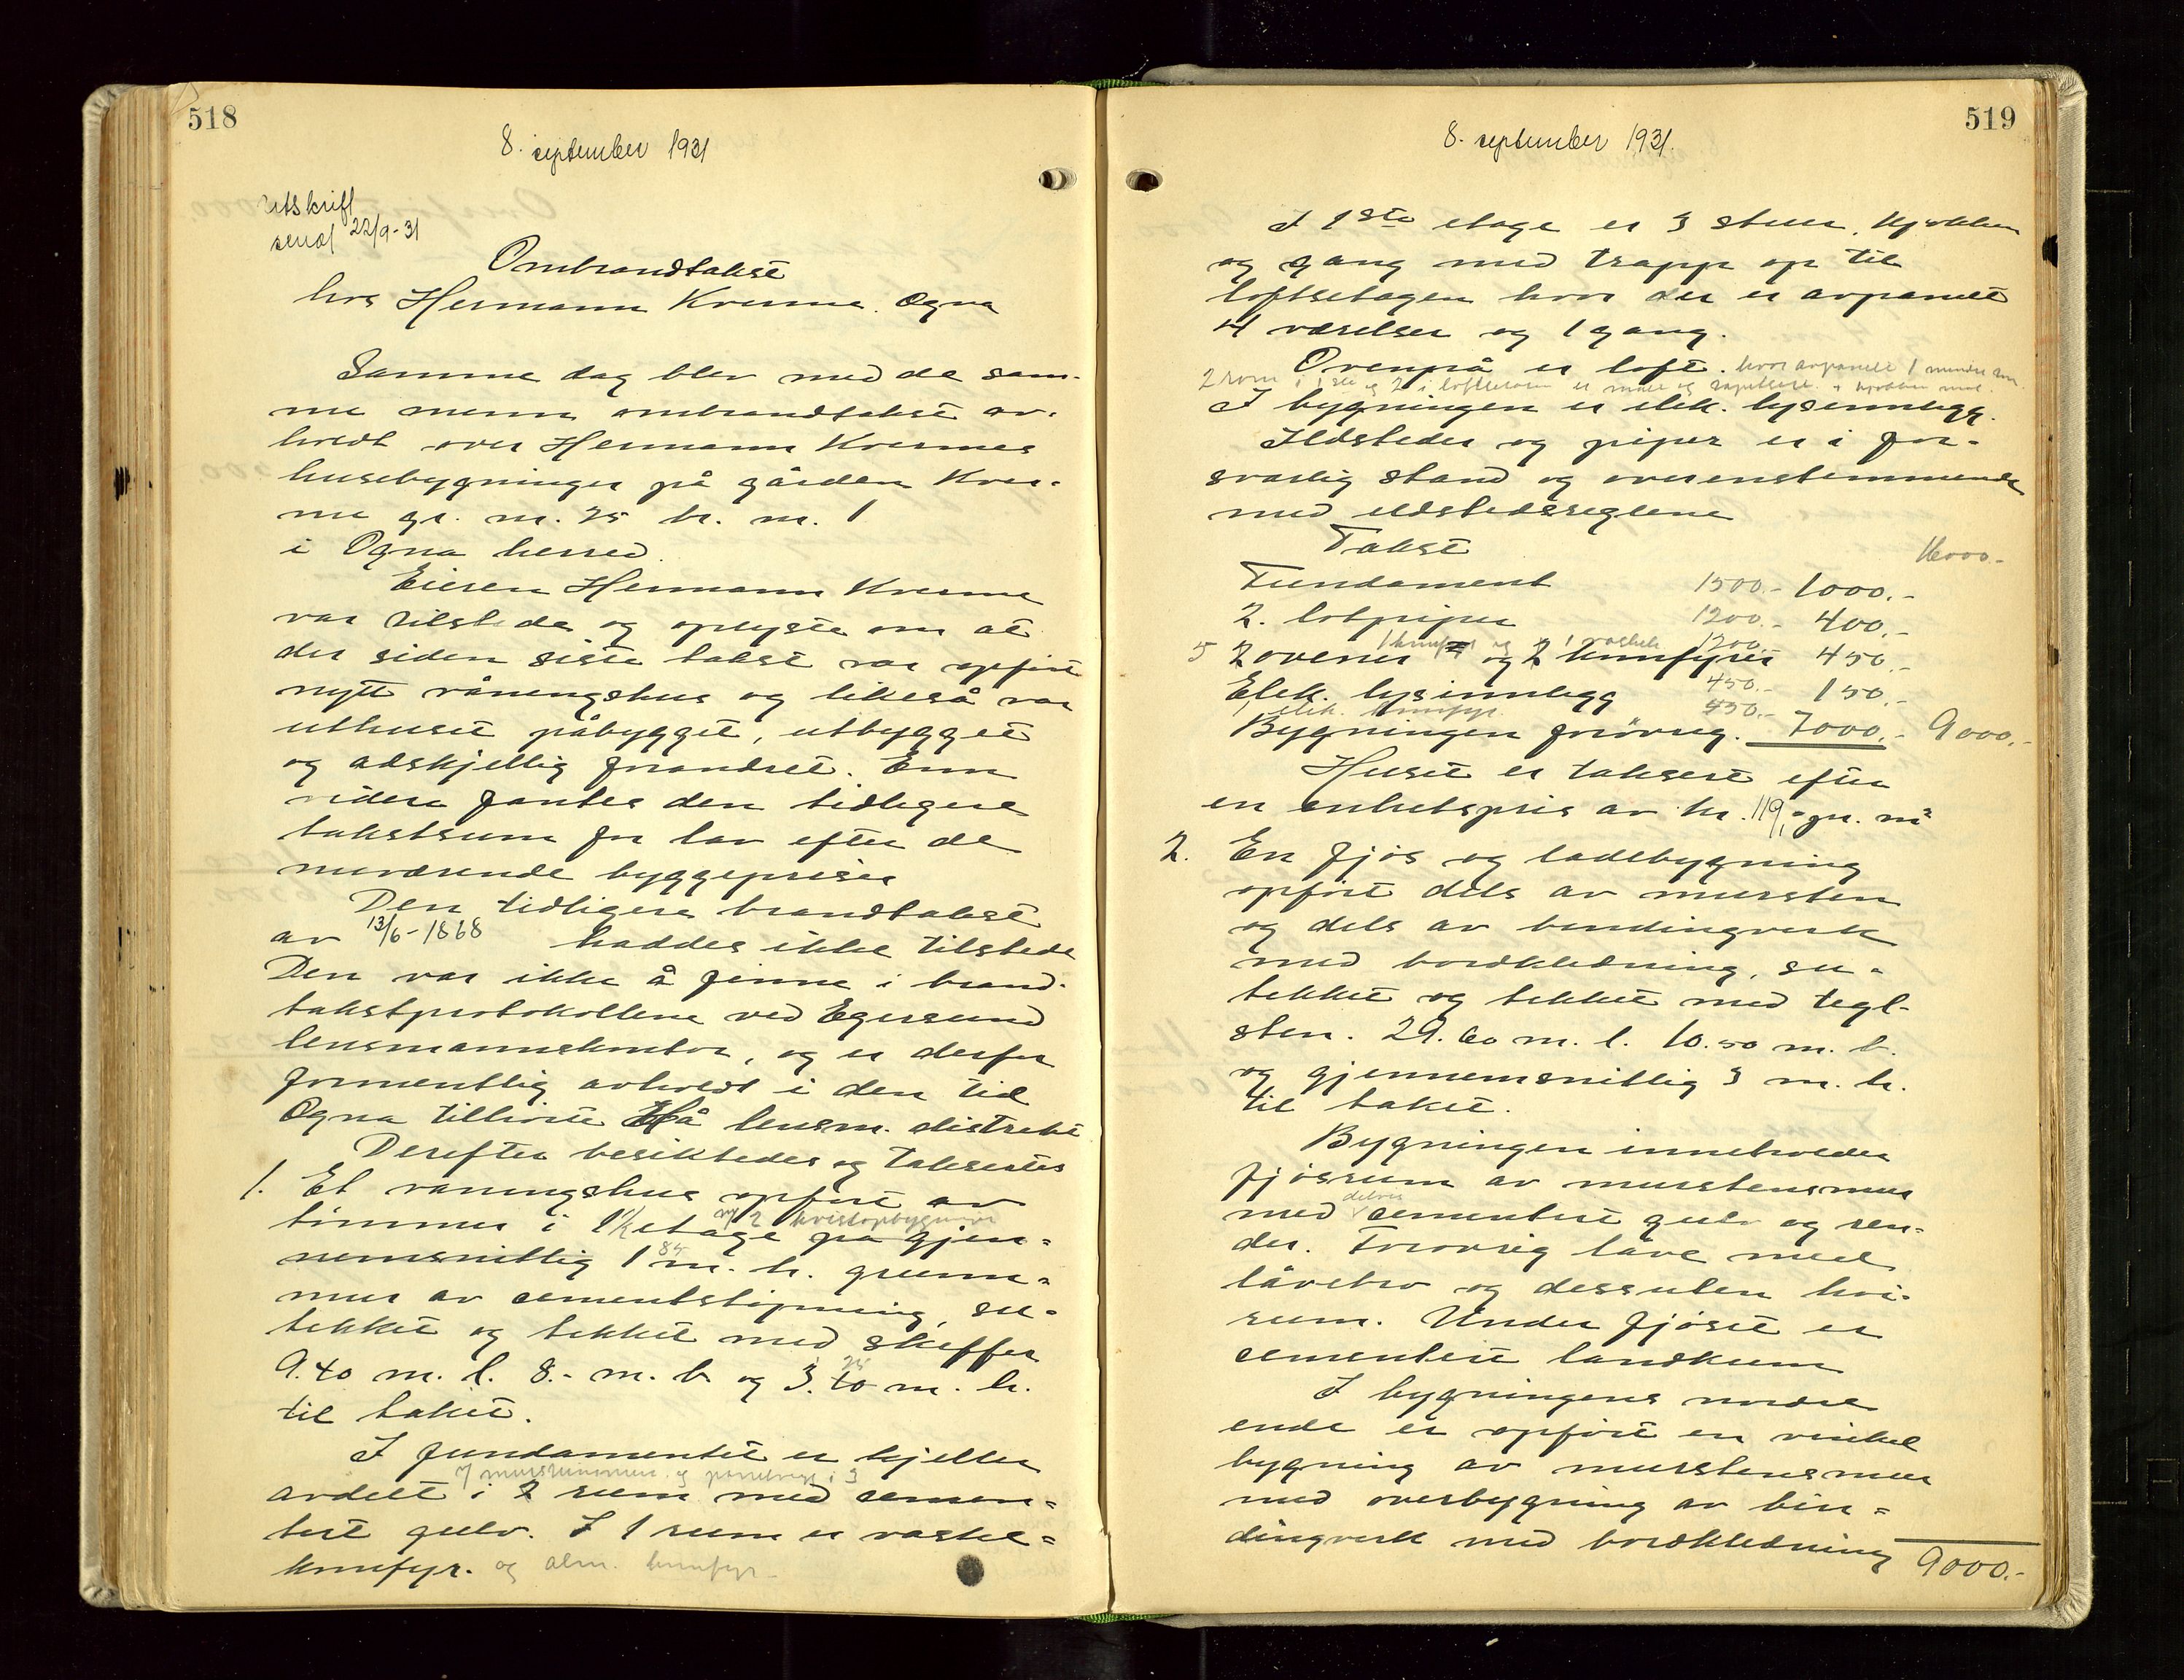 518
8. september 1931
Utskrift
send 22/9-31
Ombrandtakst
hos Hermann Kverme. Ogna
Samme dag blev med de sam-
me menn ombrandtakst av-
holdt over Hermann Kvermes
husebygninger på gården Kver-
me gr. nr. 25 br. nr. 1
i Ogna herred.
Eieren Hermann Kverme
var tilstede og oplyste om at
der siden siste takst var opført
nytt våningshus og likeså var
uthuset påbygget, utbygget
og adskjellig forandret. Enn
videre fantes den tidligere
takstsum for lav efter de
nuværende byggepriser.
Den tidligere brandtakst
av 13/6-1868 haddes ikke tilstede
Den var ikke å finne i brand-
takstprotokollene ved Egersund
lensmannskontor, og er derfor
formentlig avholdt i den tid
Ogna tilhørte Hå lensm. distrikt
Derefter besiktedes og taksertes
1. Et våningshus opført av
m/ 2 kvistopbygninger
tømmer i 1½ etage på gjen-
85
nemsnittlig 1 m. h. grunn-
mur av cementstøpning, su-
tekket og tekket med skiffer
25
9.40 m. l. 8.- m. b og 3.40 m. h.
til taket.
I fundamentet er kjeller
i 3
avdelt i 2 rum med cemen-
tert gulv. I 1 rum er vaske-
komfyr. og alm. komfyr-
519
8. september 1931.
I 1ste etage er 3 stuer, kjøkken
og gang med trapp op til
loftsetagen hvor der er avpanelt
4 værelser og 1 gang.
Ovenpå er loft. hvor avpanelt 1 mindre rom.
2 rom i 1ste og 2 i loftsetasjen er malt og tapetsert. kjøkken malt.
I bygningen er elek. lysinnlegg.
Ildsteder og piper er i for-
svarlig stand og overenstemmende
med ildstedsreglene
Takst
16000.-
Fundament 1500.- 1000.-
2. løtpiper 1200.- 400.-
1 komfyr og 1 vaskek. 1200.
5 2 ovener og 2 komfyrer 450.-
Elek. lysinnlegg 450.- 150.-
1 elek. komfyr. 450.-
Bygningen forøvrig. 7000.- 9000.-
Huset er taksert efter
en enhetspris av kr. 119,- pr. m²
2. En fjøs og ladebygning
opført dels av mursten
og dels av bindingverk
med bordkledning, su-
tekket og tekket med tegl-
sten. 29.60 m. l. 10.50 m. b.
og gjennemsnittlig 3 m. h.
til taket.
Bygningen inneholder
fjøsrum av murstensmur
delvis
med cementert gulv og ren-
der. Forøvrig låve med
låvebro og dessuten høi-
rum. Under fjøset er
cementert landkum
I bygningens nordre
ende er opført en vinkel
bygning av murstensmur
med overbygning av bin-
dingverk med bordkledning
9000.-